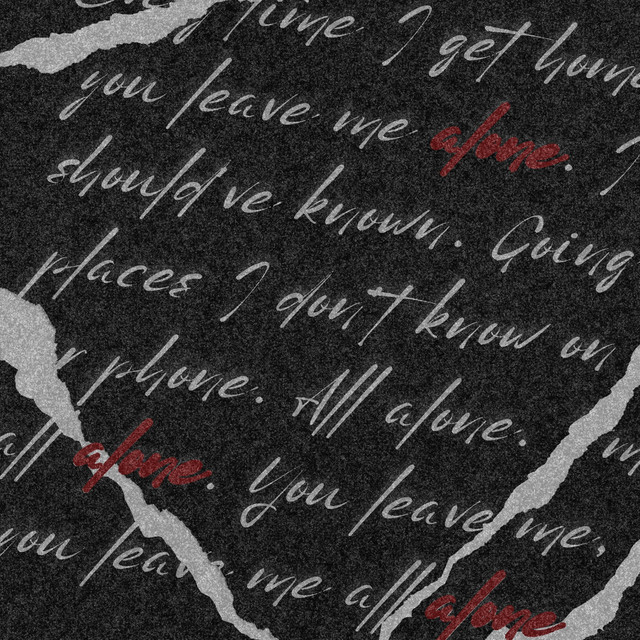 time I get home
you leave me alone. I
should've known. Going
places I don't know on
r phone. All alone.
all alone. You leave me,
you leave me all alone